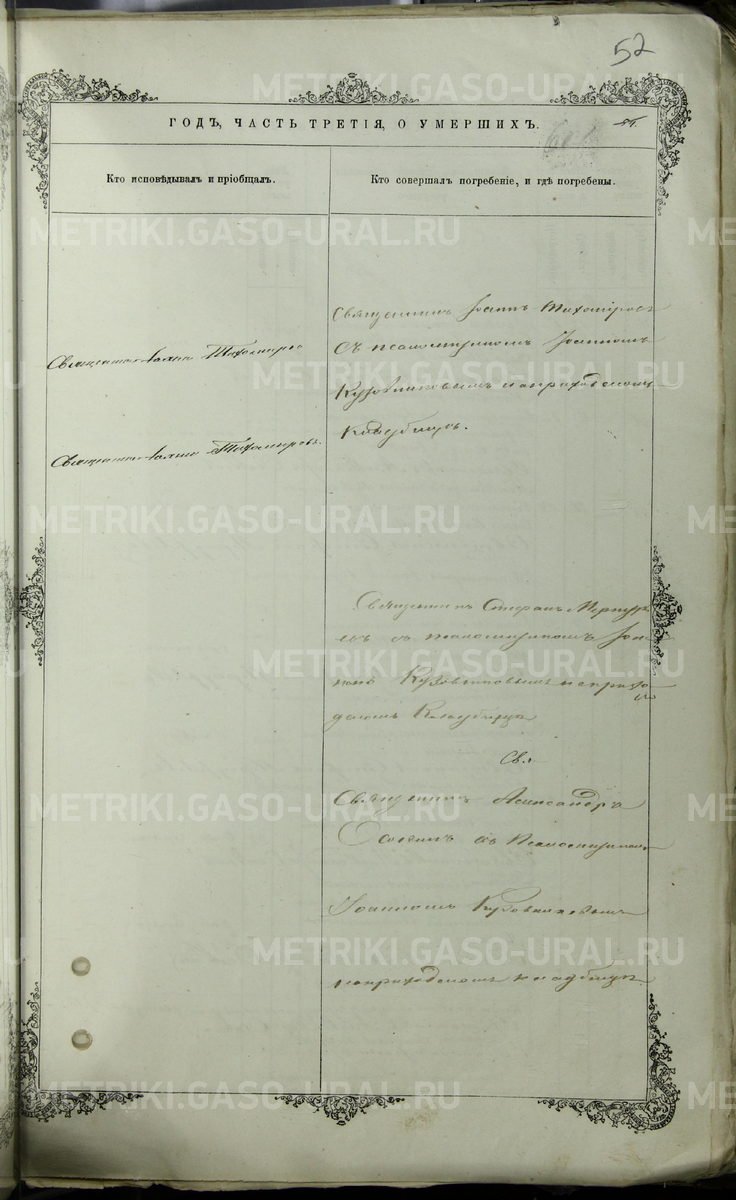 52
ГОДЪ, ЧАСТЬ ТРЕТІЯ, О УМЕРШИХЪ.
Кто исповѣдывалъ и пріобщалъ.
Кто совершалъ погребеніе, и гдѣ погребены.
Священникъ Іоаннъ Тихомировъ
Священникъ Іоаннъ Тихомировъ.
Священникъ Іоаннъ Тихомировъ
Съ псаломщикомъ Іоанномъ
Кузовниковымъ на приходскомъ
Кладбищѣ.
Священникъ Стефанъ Меркурь
евъ съ псаломщикомъ Іоан
номъ Кузовниковымъ на прихо
дскомъ Кладбищѣ
Свя
Священникъ Александръ
съ Псаломщикомъ
Іоанномъ Кузовниковымъ
на приходскомъ кладбищѣ.
METRIKI.GASO-URAL.RU